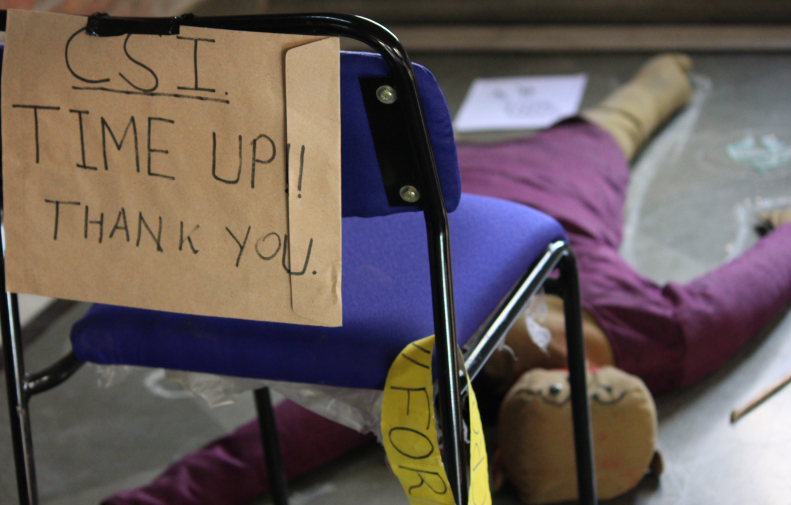 CSI.
TIME UP!!
THANK YOU.
"FOR